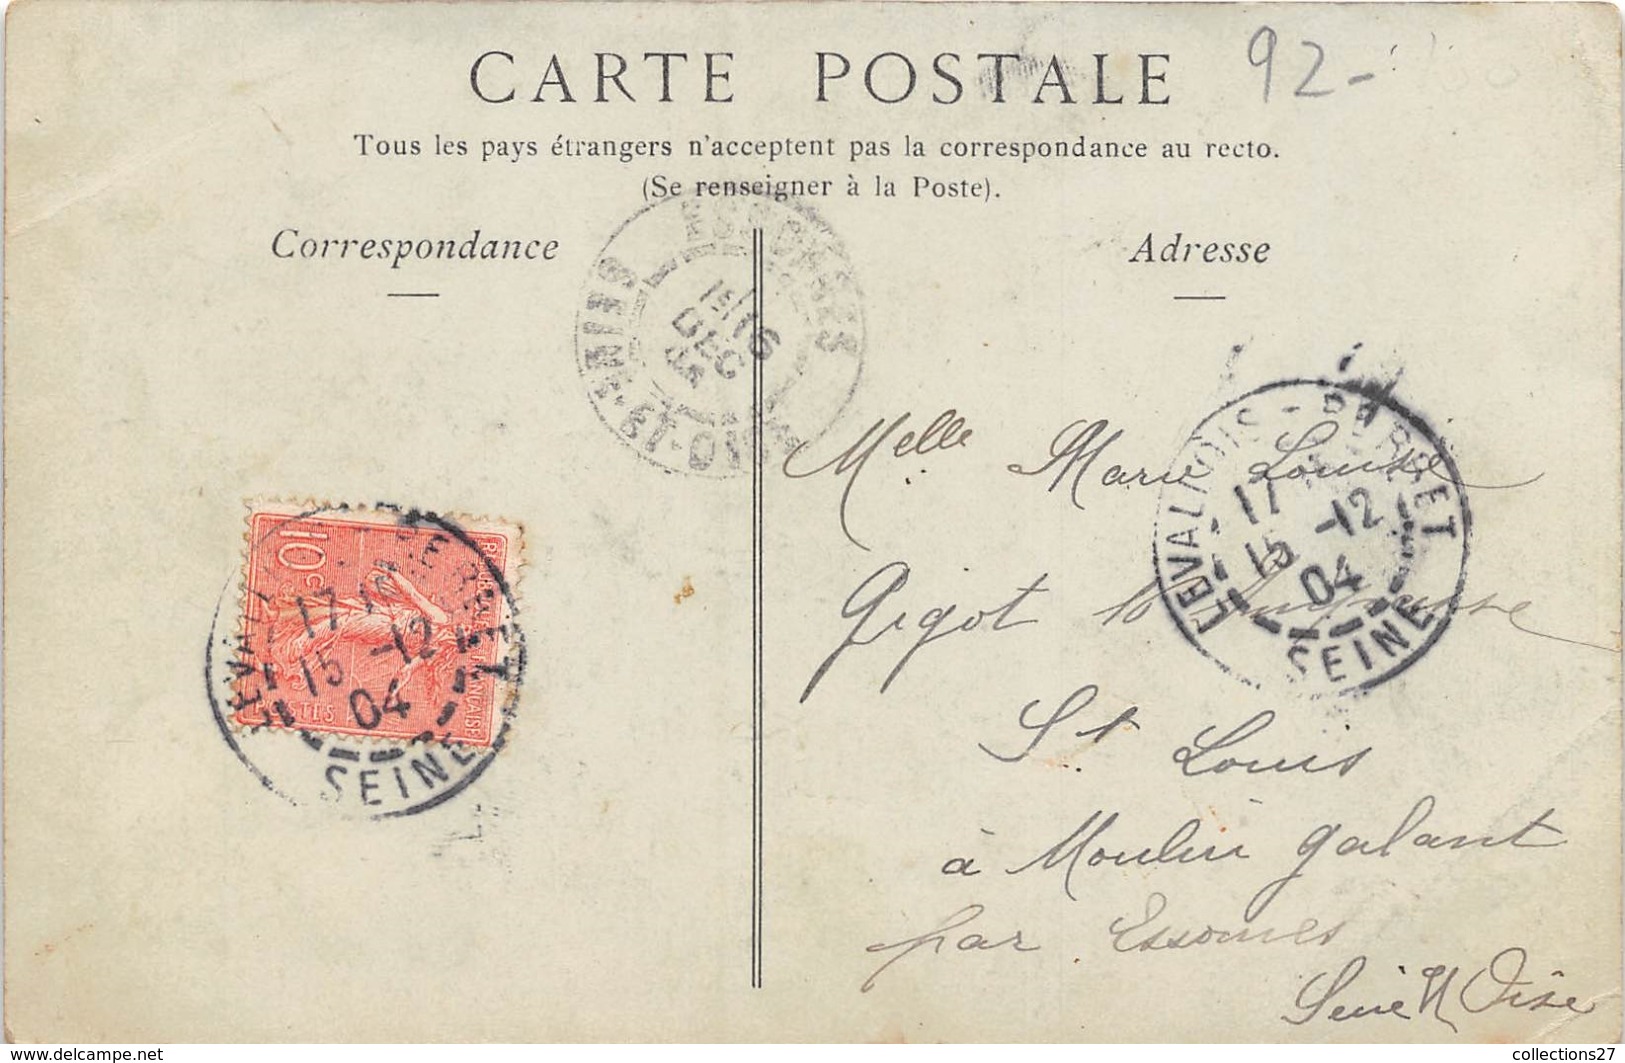 CARTE POSTALE
92-
Tous les pays étrangers n'acceptent pas la correspondance au recto.
(Se renseigner à la Poste).
Correspondance
Adresse
SEINE-ET-OISE
15
16
DEC
Melle Marie Louise
Gigot
St Louis
à Moulin galant
par Essonnes
Seine et Oise
LEVALLOIS-PERRET
17
15 -12
04
SEINE
10 c
POSTES
RÉPUBLIQUE FRANÇAISE
17 15 -12
04
SEINE
www.delcampe.net
collections27